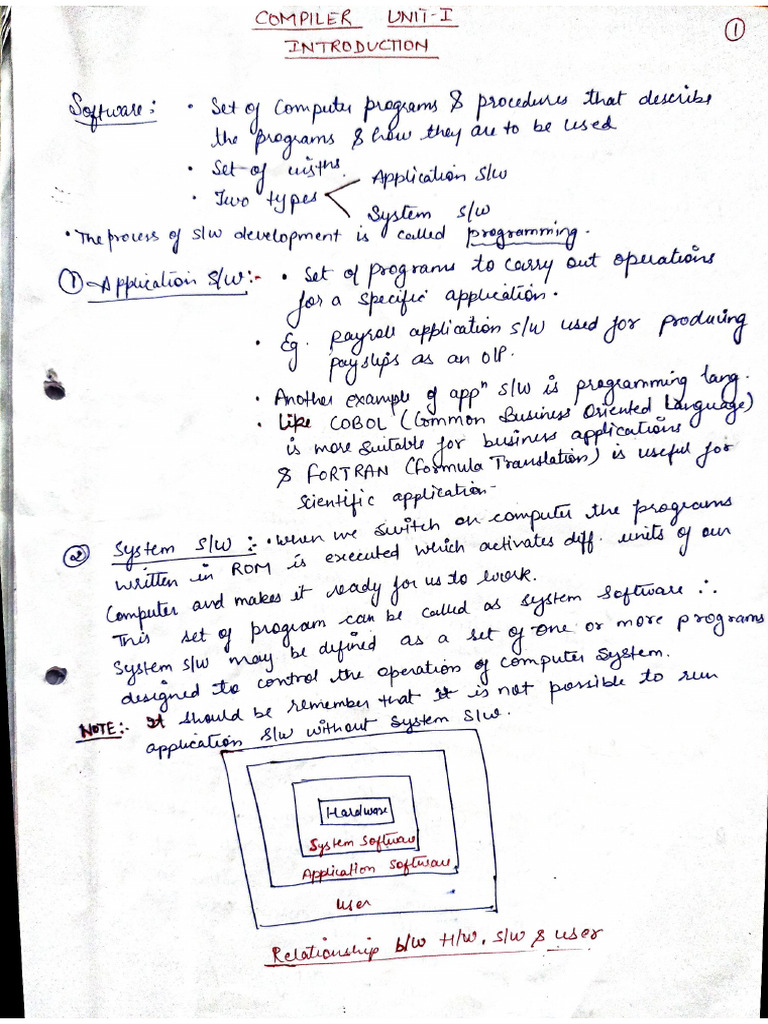 COMPILER UNIT-I
①
INTRODUCTION
Software: • Set of Computer programs & procedures that describe
the programs & how they are to be used
• Set of
• Two types
Application S/W
System S/W
• The process of S/W development is called programming.
① Application S/W:- • Set of programs to carry out operations
for a specific application.
• Eg. payroll application S/W used for producing
payslips as an O/P.
• Another example of appⁿ S/W is programming lang.
• Like COBOL (Common Business Oriented Language)
is more suitable for business applications
& FORTRAN (Formula Translation) is useful for
scientific application-
② System S/W :- • When we switch on computer the programs
written in ROM is executed which activates diff. units of our
Computer and makes it ready for us to work.
This set of program can be called as System Software ∴
System S/W may be defined as a set of one or more programs
designed to control the operation of computer System.
NOTE:- It should be remember that it is not possible to run
application S/W without System S/W.
Hardware
System Software
Application Software
User
Relationship b/w H/W, S/W & user